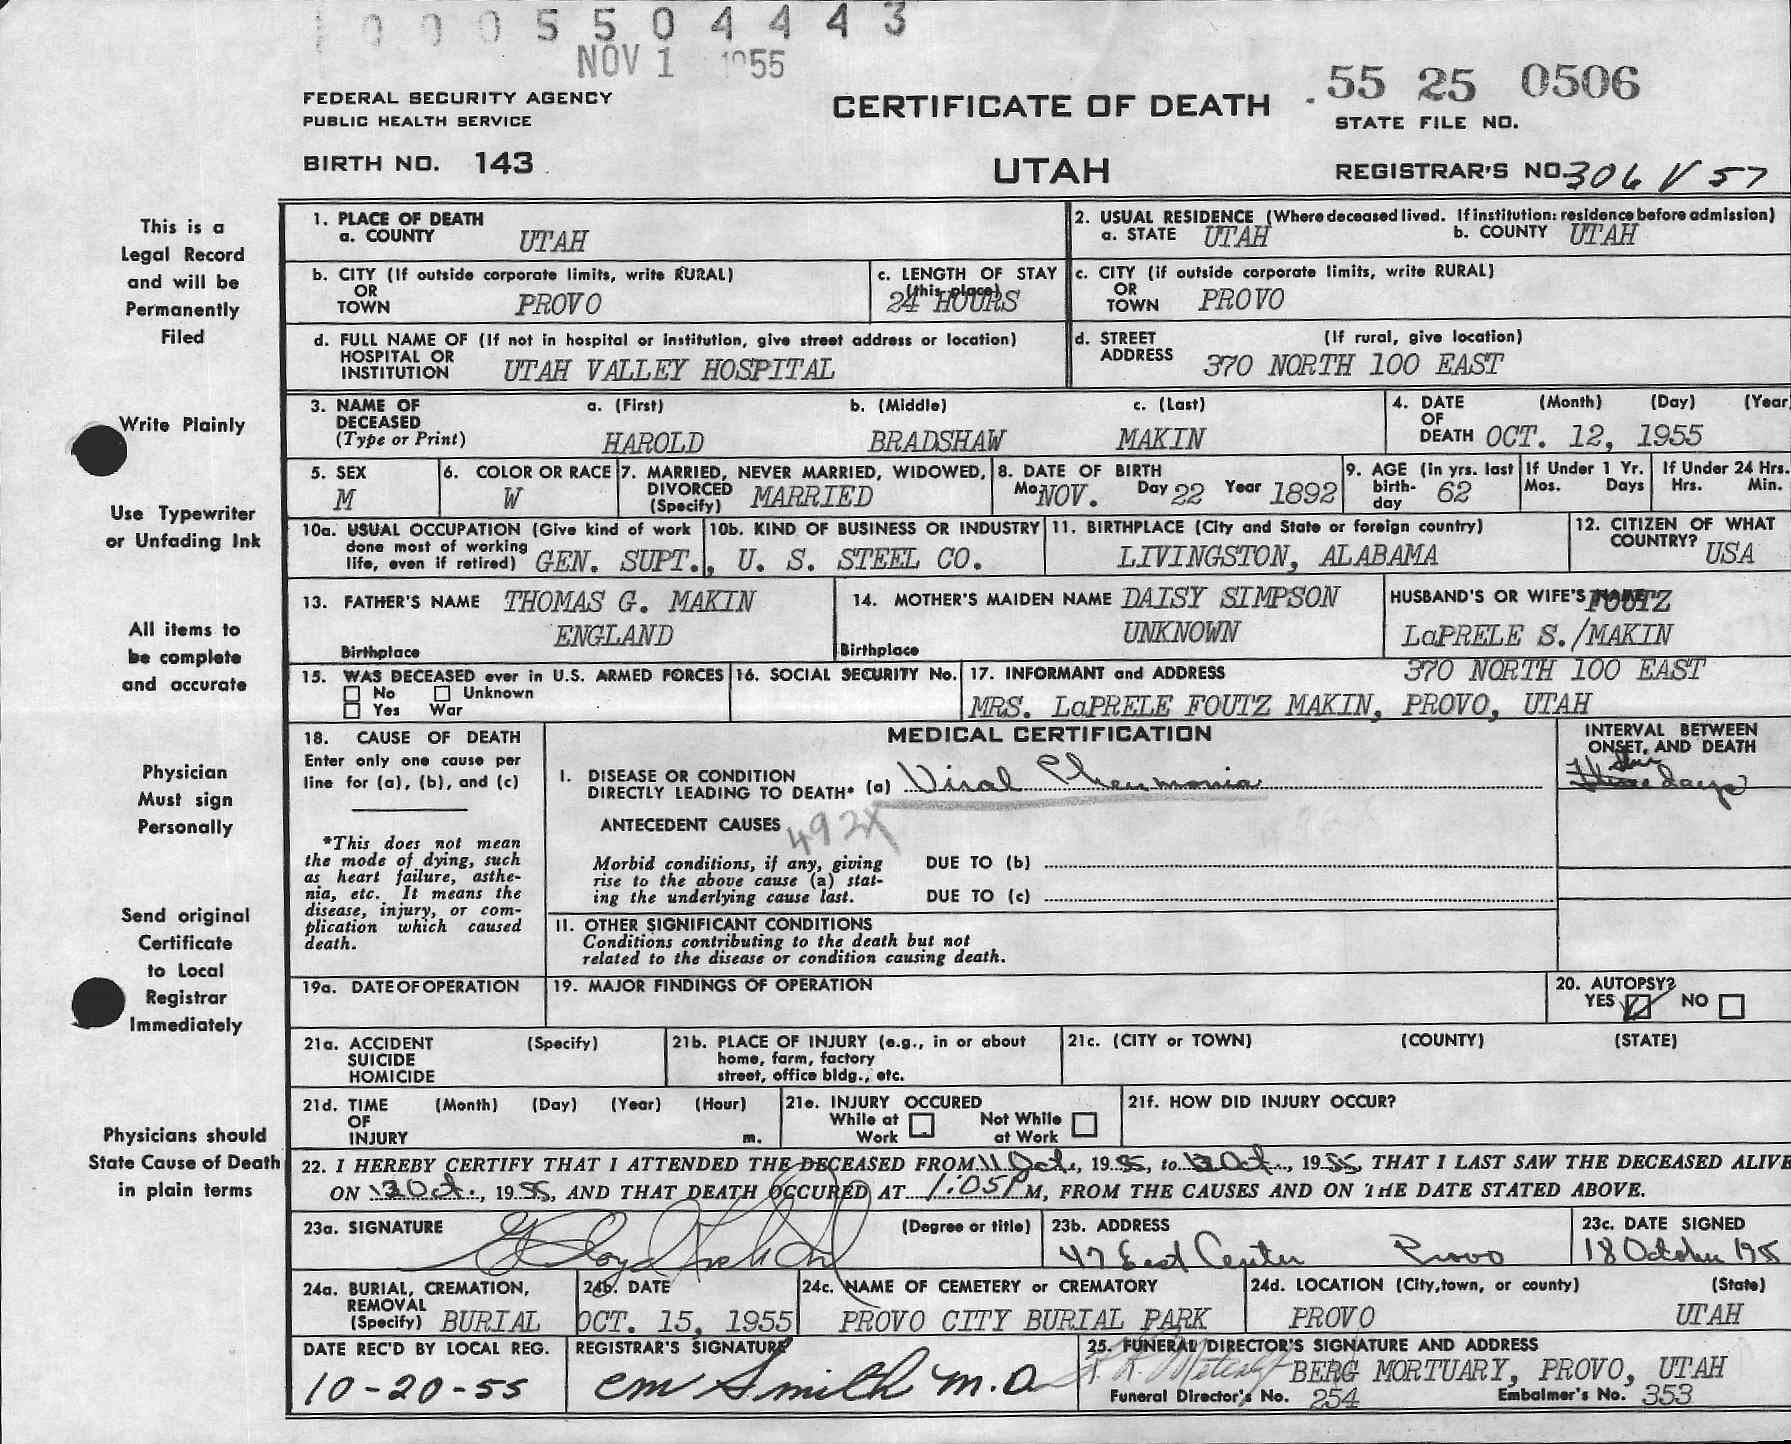 0005504443
NOV 1 1955
55 25 0506
FEDERAL SECURITY AGENCY
PUBLIC HEALTH SERVICE
CERTIFICATE OF DEATH
STATE FILE NO.
BIRTH NO. 143
UTAH
REGISTRAR'S NO. 306 V 57
This is a
Legal Record
and will be
Permanently
Filed
Write Plainly
Use Typewriter
or Unfading Ink
All items to
be complete
and accurate
Physician
Must sign
Personally
Send original
Certificate
to Local
Registrar
Immediately
Physicians should
State Cause of Death
in plain terms
1. PLACE OF DEATH
a. COUNTY UTAH
2. USUAL RESIDENCE (Where deceased lived. If institution: residence before admission)
a. STATE UTAH b. COUNTY UTAH
b. CITY (If outside corporate limits, write RURAL)
OR
TOWN PROVO
c. LENGTH OF STAY
(this place)
24 HOURS
c. CITY (if outside corporate limits, write RURAL)
OR
TOWN PROVO
d. FULL NAME OF (If not in hospital or institution, give street address or location)
HOSPITAL OR
INSTITUTION UTAH VALLEY HOSPITAL
d. STREET (If rural, give location)
ADDRESS 370 NORTH 100 EAST
3. NAME OF a. (First) b. (Middle) c. (Last)
DECEASED
(Type or Print) HAROLD BRADSHAW MAKIN
4. DATE (Month) (Day) (Year)
OF
DEATH OCT. 12, 1955
5. SEX
M
6. COLOR OR RACE
W
7. MARRIED, NEVER MARRIED, WIDOWED,
DIVORCED
(Specify) MARRIED
8. DATE OF BIRTH
Mo NOV. Day 22 Year 1892
9. AGE (in yrs. last
birth-
day 62
If Under 1 Yr.
Mos. Days
If Under 24 Hrs.
Hrs. Min.
10a. USUAL OCCUPATION (Give kind of work
done most of working
life, even if retired) GEN. SUPT.,
10b. KIND OF BUSINESS OR INDUSTRY
U. S. STEEL CO.
11. BIRTHPLACE (City and State or foreign country)
LIVINGSTON, ALABAMA
12. CITIZEN OF WHAT
COUNTRY? USA
13. FATHER'S NAME THOMAS G. MAKIN
ENGLAND
Birthplace
14. MOTHER'S MAIDEN NAME DAISY SIMPSON
UNKNOWN
Birthplace
HUSBAND'S OR WIFE'S NAME
FOUTZ
LaPRELE S./MAKIN
15. WAS DECEASED ever in U.S. ARMED FORCES
No Unknown
Yes War
16. SOCIAL SECURITY No.
17. INFORMANT and ADDRESS 370 NORTH 100 EAST
MRS. LaPRELE FOUTZ MAKIN, PROVO, UTAH
18. CAUSE OF DEATH
Enter only one cause per
line for (a), (b), and (c)
*This does not mean
the mode of dying, such
as heart failure, asthe-
nia, etc. It means the
disease, injury, or com-
plication which caused
death.
MEDICAL CERTIFICATION
I. DISEASE OR CONDITION
DIRECTLY LEADING TO DEATH* (a) Viral Pneumonia
ANTECEDENT CAUSES
492X
Morbid conditions, if any, giving
rise to the above cause (a) stat-
ing the underlying cause last.
DUE TO (b)
DUE TO (c)
II. OTHER SIGNIFICANT CONDITIONS
Conditions contributing to the death but not
related to the disease or condition causing death.
INTERVAL BETWEEN
ONSET, AND DEATH
days
19a. DATE OF OPERATION
19. MAJOR FINDINGS OF OPERATION
20. AUTOPSY?
YES NO
21a. ACCIDENT (Specify)
SUICIDE
HOMICIDE
21b. PLACE OF INJURY (e.g., in or about
home, farm, factory
street, office bldg., etc.
21c. (CITY or TOWN) (COUNTY) (STATE)
21d. TIME (Month) (Day) (Year) (Hour)
OF
INJURY m.
21e. INJURY OCCURED
While at Not While
Work at Work
21f. HOW DID INJURY OCCUR?
22. I HEREBY CERTIFY THAT I ATTENDED THE DECEASED FROM 11 Oct., 1955, to 12 Oct., 1955, THAT I LAST SAW THE DECEASED ALIVE
ON 12 Oct., 1955, AND THAT DEATH OCCURED AT 1:05P M, FROM THE CAUSES AND ON THE DATE STATED ABOVE.
23a. SIGNATURE (Degree or title)
23b. ADDRESS
47 East Center Provo
23c. DATE SIGNED
18 October 195
24a. BURIAL, CREMATION,
REMOVAL
(Specify) BURIAL
24b. DATE
OCT. 15, 1955
24c. NAME OF CEMETERY or CREMATORY
PROVO CITY BURIAL PARK
24d. LOCATION (City, town, or county) (State)
PROVO UTAH
DATE REC'D BY LOCAL REG.
10-20-55
REGISTRAR'S SIGNATURE
CM Smith M.D.
25. FUNERAL DIRECTOR'S SIGNATURE AND ADDRESS
BERG MORTUARY, PROVO, UTAH
Funeral Director's No. 254 Embalmer's No. 353